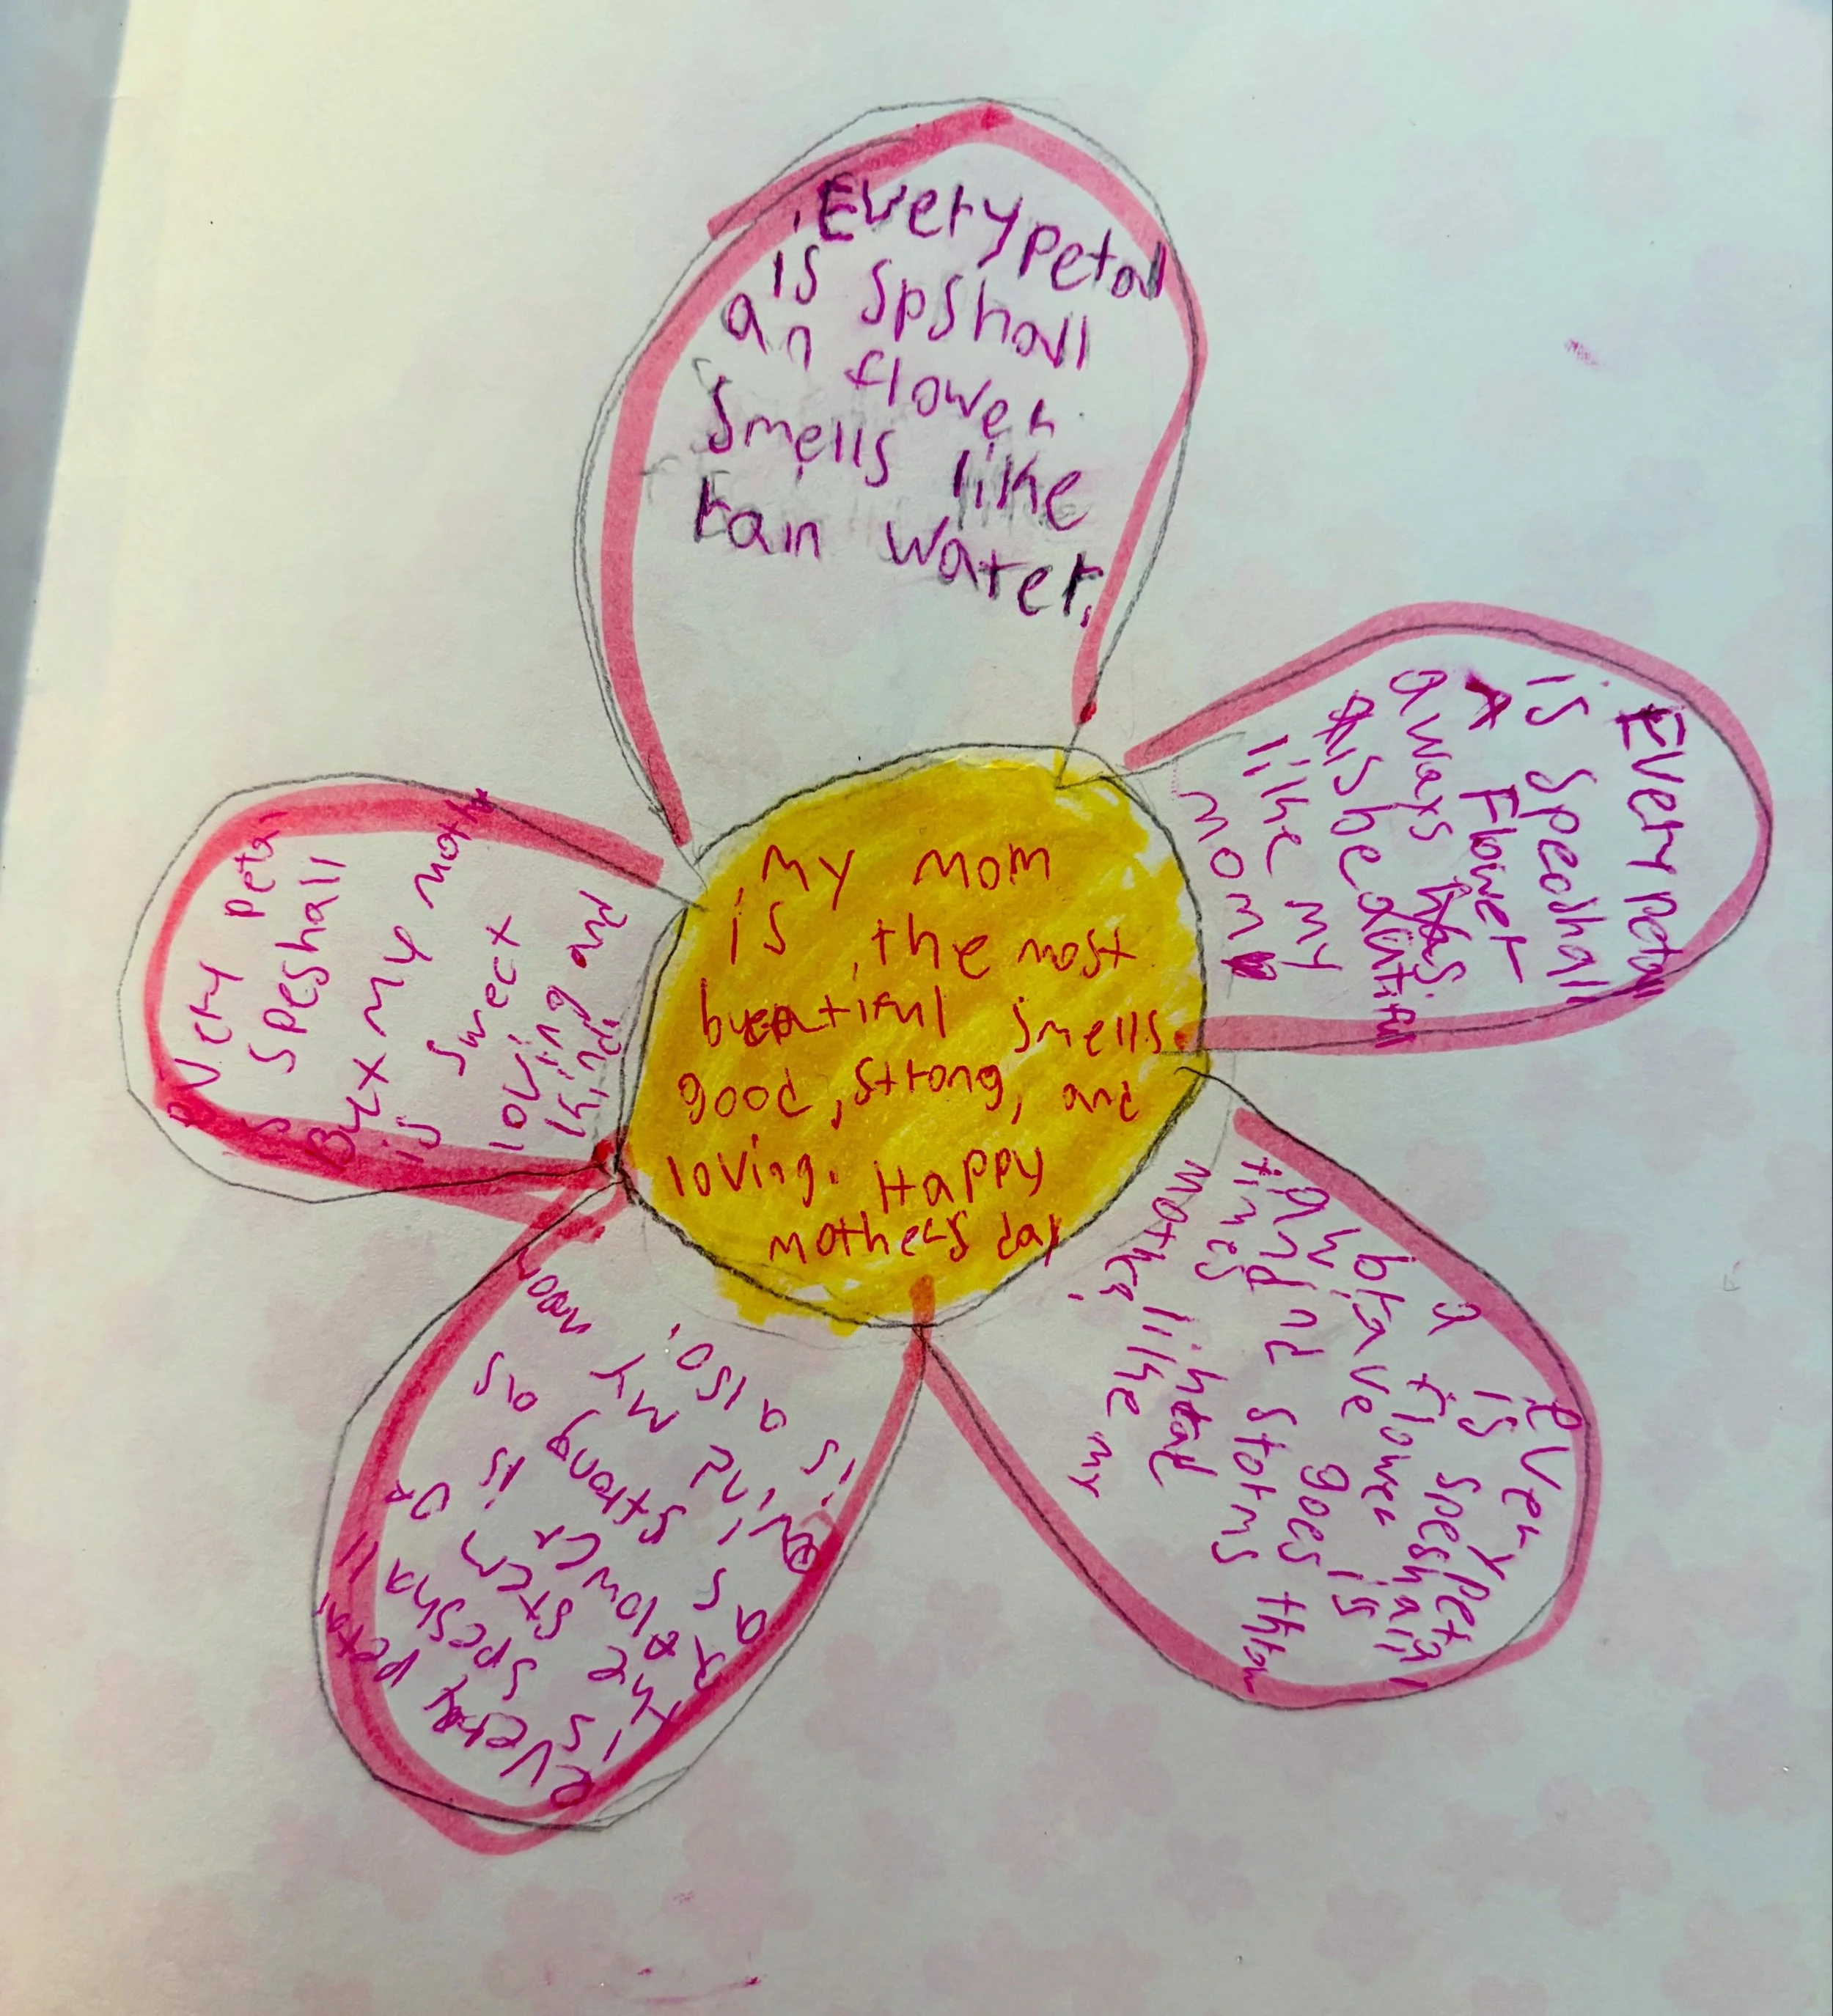 Every petal
is spshall
an flower
smells like
rain water.
Every petal
is Speachall
A Flower
aways has
beautiful
like my
mom
every petal
is speshall
a flower is
brave goes
and storms
times
like my
mother
every petal
is speshall
the stem of
flower is
strong as
and my mom
is also.
every petal
is speshall
But my mother
is sweet
loving and
kind.
my mom
is, the most
beautiful smells
good, strong, and
loving. Happy
mothers day